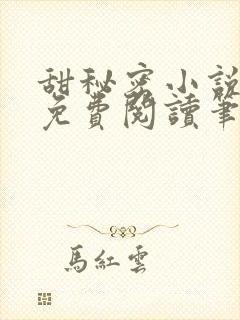 甜秘密小說
免費閱讀筆
馬紅雲